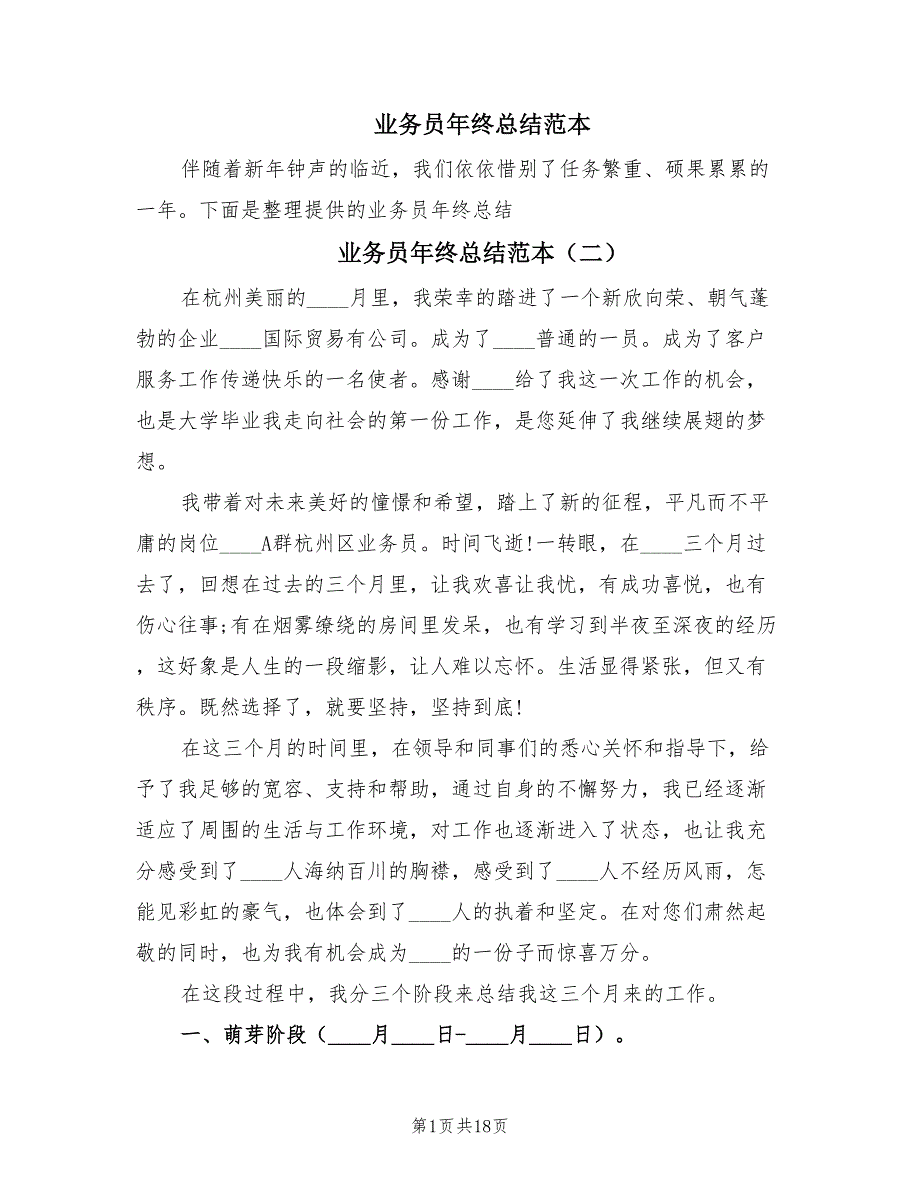 业务员年终总结范本
伴随着新年钟声的临近，我们依依惜别了任务繁重、硕果累累的
一年。下面是整理提供的业务员年终总结
业务员年终总结范本（二）
在杭州美丽的____月里，我荣幸的踏进了一个新欣向荣、朝气蓬
勃的企业____国际贸易有公司。成为了____普通的一员。成为了客户
服务工作传递快乐的一名使者。感谢____给了我这一次工作的机会，
也是大学毕业我走向社会的第一份工作，是您延伸了我继续展翅的梦
想。
我带着对未来美好的憧憬和希望，踏上了新的征程，平凡而不平
庸的岗位____A群杭州区业务员。时间飞逝!一转眼，在____三个月过
去了，回想在过去的三个月里，让我欢喜让我忧，有成功喜悦，也有
伤心往事;有在烟雾缭绕的房间里发呆，也有学习到半夜至深夜的经历
，这好象是人生的一段缩影，让人难以忘怀。生活显得紧张，但又有
秩序。既然选择了，就要坚持，坚持到底!
在这三个月的时间里，在领导和同事们的悉心关怀和指导下，给
予了我足够的宽容、支持和帮助，通过自身的不懈努力，我已经逐渐
适应了周围的生活与工作环境，对工作也逐渐进入了状态，也让我充
分感受到了____人海纳百川的胸襟，感受到了____人不经历风雨，怎
能见彩虹的豪气，也体会到了____人的执着和坚定。在对您们肃然起
敬的同时，也为我有机会成为____的一份子而惊喜万分。
在这段过程中，我分三个阶段来总结我这三个月来的工作。
一、萌芽阶段（____月____日-____月____日）。
第1页共18页